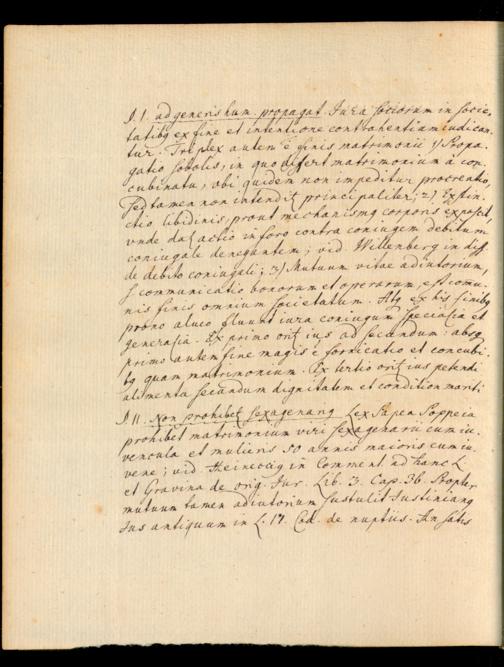 § I. ad generis hum. propagat. Jura sociorum in socie,
tatibq ex fine et intentione contrahentium iudican,
tur. Triplex autem ē finis matrimonii 1) Propa,
gatio sobolis, in quo differt matrimonium a con,
cubinatu, ubi quidem non impeditur procreatio,
sed tamen non intendit principaliter; 2) Exstin,
ctio libidinis, prout mechanismq corporis exposcit,
unde dat actio in foro contra coniugem debitum
coniugale denegantem; vid. Willenberg in diss.
de debito coniugali; 3) Mutuum vitae adiutorium,
s. communicatio bonorum et operarum, est comu,
nis finis omnium societatum. Atq ex his finibq
prono alveo fluunt iura coniugum specialia et
generalia. Ex primo orit ius ad secundum: absq
primo autem fine magis ē fornicatio et concubi,
tq quam matrimonium. Ex tertio orit ius petendi
alimenta secundum dignitatem et condition mariti
§ II. Non prohibet sexagenariq Lex Papia Poppaea
prohibet matrimonium viri sexagenarii cum iu,
vencula et mulieris 50 annis maioris cum iu,
vene; vid. Heinecciq in Comment ad hanc L
et Gravina de orig. Jur. Lib. 3. Cap. 36. Propter
mutuum tamen adiutorium sustulit Justinianq
Jus antiquum in L. 27 Cod. de nuptiis. An satis